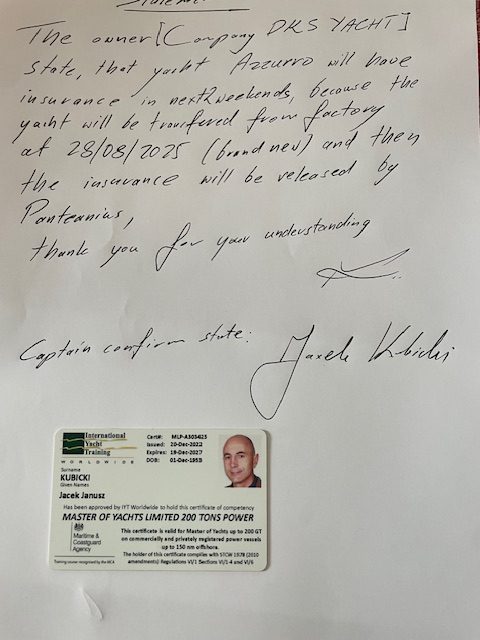 Statement
The owner [Company DKS YACHT]
state, that yacht Azzurro will have
insurance in next 2 weekends, because the
yacht will be transfered from factory
at 28/08/2025 (brand new) and then
the insurance will be released by
Pantaenius,
thank you for your understanding
Captain confirm state: Jacek Kubicki
International
Yacht
Training
WORLDWIDE
Cert#: MLP-A303423
Issued: 20-Dec-2022
Expires: 19-Dec-2027
DOB: 01-Dec-1953
Surname
KUBICKI
Given Names
Jacek Janusz
Has been approved by IYT Worldwide to hold this certificate of competency
MASTER OF YACHTS LIMITED 200 TONS POWER
Maritime &
Coastguard
Agency
This certificate is valid for Master of Yachts up to 200 GT
on commercially and privately registered power vessels
up to 150 nm offshore.
The holder of this certificate complies with STCW 1978 (2010
amendments) Regulations VI/1 Sections VI/1-4 and VI/6
Training course recognised by the MCA